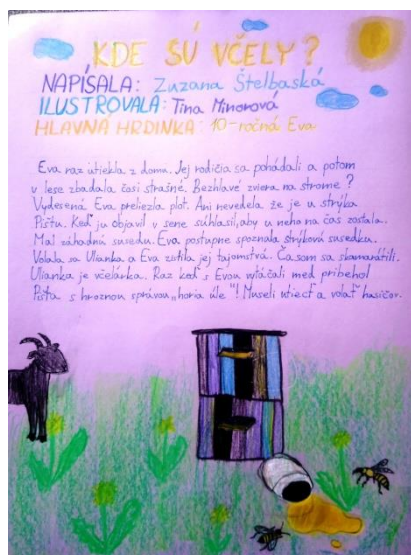 KDE SÚ VČELY?
NAPÍSALA: Zuzana Štelbaská
ILUSTROVALA: Tina Minorová
HLAVNÁ HRDINKA: 10-ročná Eva
Eva raz utiekla z domu. Jej rodičia sa pohádali a potom
v lese zbadala čosi strašné. Bezhlavé zviera na strome?
Vydesená Eva preliezla plot. Ani nevedela že je u strýka
Pištu. Keď ju objavil v sene súhlasil, aby u neho na čas zostala.
Mal záhadnú susedu. Eva postupne spoznala strýkovu susedku.
Volala sa Ulianka a Eva zistila jej tajomstvá. Časom sa skamarátili.
Ulianka je včelárka. Raz keď s Evou vytáčali med pribehol
Pišta s hroznou správou „horia úle"! Museli utiecť a volať hasičov.